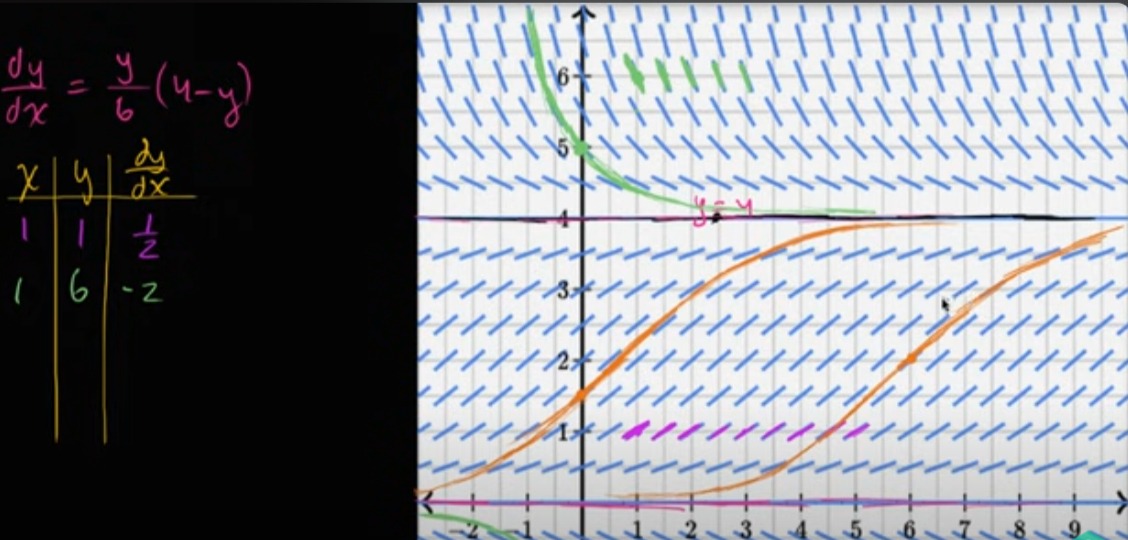 dy/dx = y/6 (4-y)
x y dy/dx
1 1 1/2
1 6 -2
y = 4
6
5
4
3
2
1
-2 -1 1 2 3 4 5 6 7 8 9